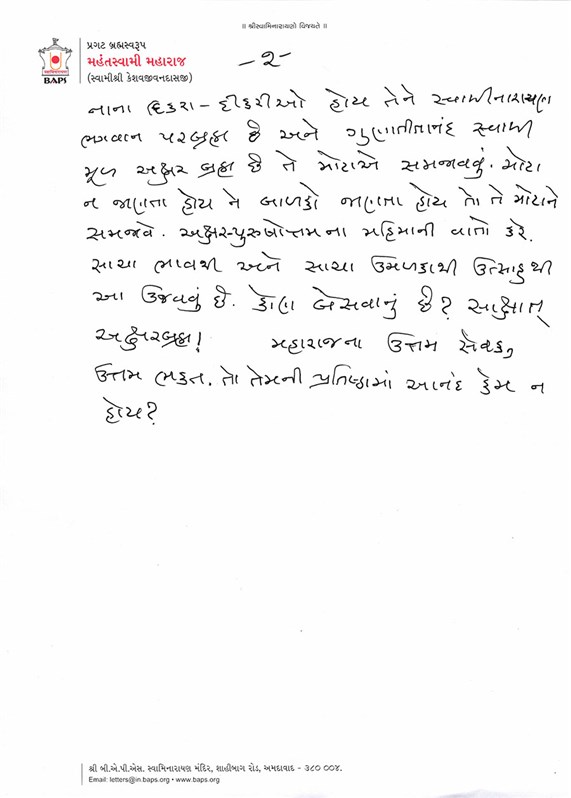 ॥ શ્રીસ્વામિનારાયણો વિજયતે ॥
પ્રગટ બ્રહ્મસ્વરૂપ
મહંતસ્વામી મહારાજ
(સ્વામીશ્રી કેશવજીવનદાસજી)
BAPS
-૨-
નાના દિકરા - દીકરીઓ હોય તેને સ્વામીનારાયણ
ભગવાન પરબ્રહ્મ છે અને ગુણાતીતાનંદ સ્વામી
મૂળ અક્ષર બ્રહ્મ છે તે મોટાએ સમજાવવું. મોટા
ન જાણતા હોય ને બાળકો જાણતા હોય તો તે મોટાને
સમજાવે. અક્ષર-પુરુષોત્તમના મહિમાની વાતો કરે.
સાચા ભાવથી અને સાચા ઉમળકાથી ઉત્સાહથી
આ ઉજવવું છે. કોણ બેસવાનું છે? સાક્ષાત્
અક્ષરબ્રહ્મ! મહારાજના ઉત્તમ સેવક,
ઉત્તમ ભક્ત. તો તેમની પ્રતિષ્ઠામાં આનંદ કેમ ન
હોય?
શ્રી બી.એ.પી.એસ. સ્વામિનારાયણ મંદિર, શાહીબાગ રોડ, અમદાવાદ - ૩૮૦ ૦૦૪.
Email: letters@in.baps.org • www.baps.org